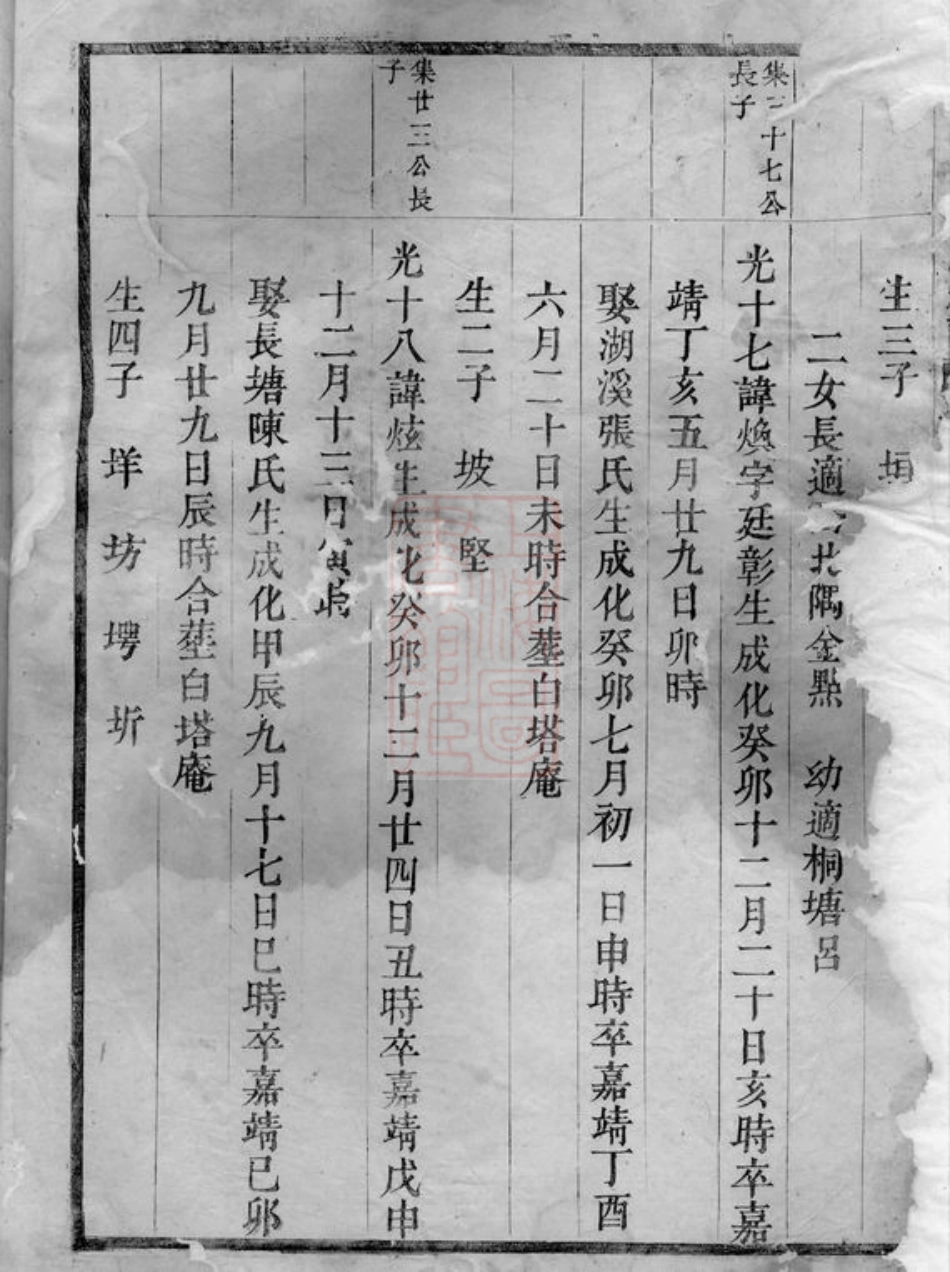 生三子　垣
二女長適　北隅金點　幼適桐塘呂
集二十七公
長子
光十七諱煥字廷彰生成化癸卯十二月二十日亥時卒嘉
靖丁亥五月廿九日卯時
娶湖溪張氏生成化癸卯七月初一日申時卒嘉靖丁酉
六月二十日未時合塟白塔庵
生二子　坡　堅
集廿三公長
子
光十八諱炫生成化癸卯十二月廿四日丑時卒嘉靖戊申
十二月十三日寅時
娶長塘陳氏生成化甲辰九月十七日巳時卒嘉靖已卯
九月廿九日辰時合塟白塔庵
生四子　垟　坊　塄　圻